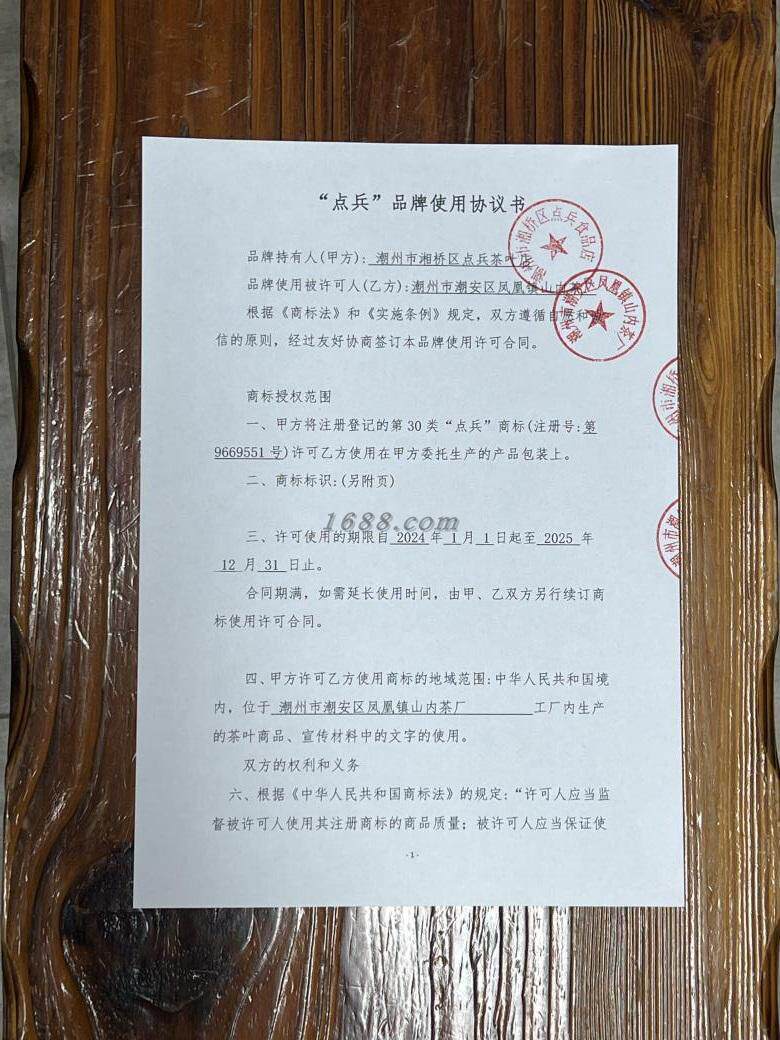 “点兵”品牌使用协议书
品牌持有人(甲方): 潮州市湘桥区点兵茶叶店
品牌使用被许可人(乙方):潮州市潮安区凤凰镇山内茶厂
根据《商标法》和《实施条例》规定，双方遵循自愿和诚
信的原则，经过友好协商签订本品牌使用许可合同。
商标授权范围
一、甲方将注册登记的第 30 类“点兵”商标(注册号:第
9669551 号)许可乙方使用在甲方委托生产的产品包装上。
二、商标标识:(另附页)
1688.com
三、许可使用的期限自 2024 年 1 月 1 日起至 2025 年
12 月 31 日止。
合同期满，如需延长使用时间，由甲、乙双方另行续订商
标使用许可合同。
四、甲方许可乙方使用商标的地域范围:中华人民共和国境
内，位于 潮州市潮安区凤凰镇山内茶厂 工厂内生产
的茶叶商品、宣传材料中的文字的使用。
双方的权利和义务
六、根据《中华人民共和国商标法》的规定:“许可人应当监
督被许可人使用其注册商标的商品质量；被许可人应当保证使
-1-
潮州市湘桥区点兵食品店
潮州市潮安区凤凰镇山内茶厂
市湘桥
潮州市潮